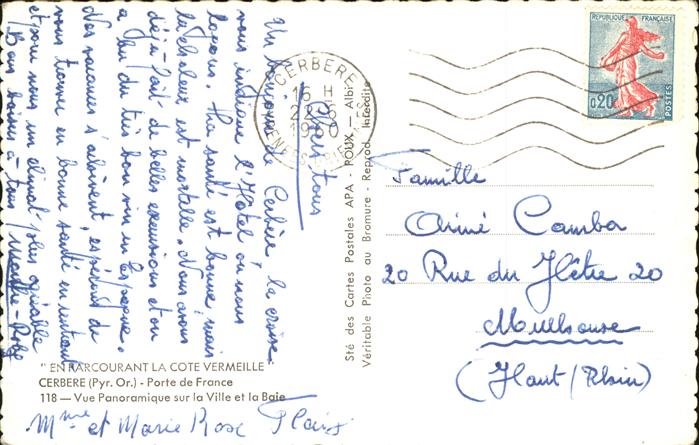 Chers tous
Un bonjour de Cerbère, la croix
vous indique l'Hôtel où nous
logeons. Ma santé est bonne, mais
la chaleur est mortelle. Nous avons
déjà fait de belles excursions et on
a bu du très bon vin en Espagne.
Nos vacances s'achèvent, espérant de
vous trouver en bonne santé en rentrant
et pour nous un climat plus agréable
Bons baisers à tous Marie-Rose
"EN PARCOURANT LA COTE VERMEILLE"
CERBERE (Pyr. Or.) - Porte de France
118 — Vue Panoramique sur la Ville et la Baie
Mme et Marie Rose
Sté des Cartes Postales APA - POUX - Albi
Véritable Photo au Bromure - Reprod. Interdite
CERBERE
16 H
1960
PYRENEES-ORIENTALES
REPUBLIQUE FRANÇAISE
0,20
POSTES
Famille
Aimé Camba
20 Rue du Hêtre 20
Mulhouse
(Haut/Rhin)